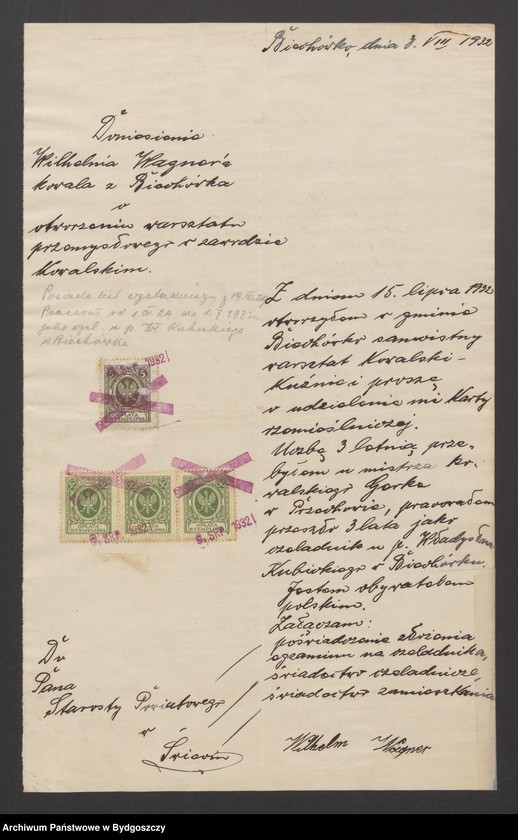 Bischórko, dnia 3. VIII 1932
Doniesienie
Wilhelma Wagner'a
kowala z Bischórka
o
otworzeniu warsztatu
przemysłowego w zawodzie
Kowalskim.
Posiada list czeladniczy z
Pracował od
jako czel. u p. Wł. Kubickiego
w Bischórko
Z dniem 15. lipca 1932
otworzyłem w gminie
Bischórko samoistny
warsztat Kowalski-
Kuźnię i proszę
o udzielenie mi Karty
rzemieślniczej.
Naukę 3 letnią prze-
byłem u mistrza ko-
walskiego Gorka
w Przechowie, pracowałem
przeszło 3 lata jako
czeladnik u p. Władysława
Kubickiego w Bischórku.
Jestem obywatelem
polskim.
Załączam:
poświadczenie złożenia
egzaminu na czeladnika,
świadectwo czeladnicze,
świadectwo zamieszkania
Wilhelm Wagner
Do
Pana
Starosty Powiatowego
w
Świeciu
5
OPŁATA
STEMPLOWA
9. SRP. 1932
OPŁATA
STEMPLOWA
9. SRP. 1932
9. SRP. 1932
Archiwum Państwowe w Bydgoszczy